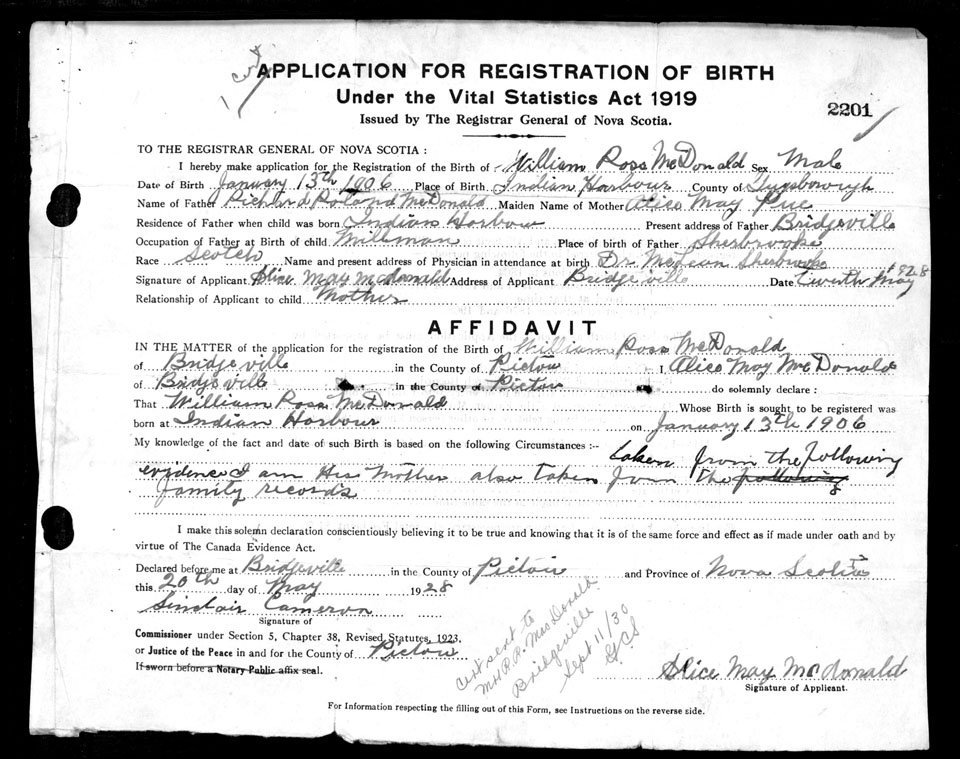 APPLICATION FOR REGISTRATION OF BIRTH
Under the Vital Statistics Act 1919
2201
Issued by The Registrar General of Nova Scotia.
TO THE REGISTRAR GENERAL OF NOVA SCOTIA :
I hereby make application for the Registration of the Birth of William Ross McDonald Sex Male
Date of Birth January 13th 1906 Place of Birth Indian Harbour County of Guysborough
Name of Father Richard Roland McDonald Maiden Name of Mother Alice May Pue
Residence of Father when child was born Indian Harbour Present address of Father Bridgeville
Occupation of Father at Birth of child Millman Place of birth of Father Sherbrooke
Race Scotch Name and present address of Physician in attendance at birth Dr Sherbrooke
Signature of Applicant Alice May Mcdonald Address of Applicant Bridgeville Date May 1928
Relationship of Applicant to child Mother
AFFIDAVIT
IN THE MATTER of the application for the registration of the Birth of William Ross McDonald
of Bridgeville in the County of Pictou I, Alice May McDonald
of Bridgeville in the County of Pictou do solemnly declare :
That William Ross McDonald Whose Birth is sought to be registered was
born at Indian Harbour on January 13th 1906
My knowledge of the fact and date of such Birth is based on the following Circumstances :-- taken from the following
evidence I am His Mother also taken from the following
family records
I make this solemn declaration conscientiously believing it to be true and knowing that it is of the same force and effect as if made under oath and by
virtue of The Canada Evidence Act.
Declared before me at Bridgeville in the County of Pictou and Province of Nova Scotia
this 20th day of May 1928
Sinclair Cameron
Signature of
Commissioner under Section 5, Chapter 38, Revised Statutes, 1923,
or Justice of the Peace in and for the County of Pictou
If sworn before a Notary Public affix seal.
Cert sent to
Mr R.R. MacDonald
Bridgeville
Sept 11/30
Alice May Mcdonald
Signature of Applicant.
For Information respecting the filling out of this Form, see Instructions on the reverse side.